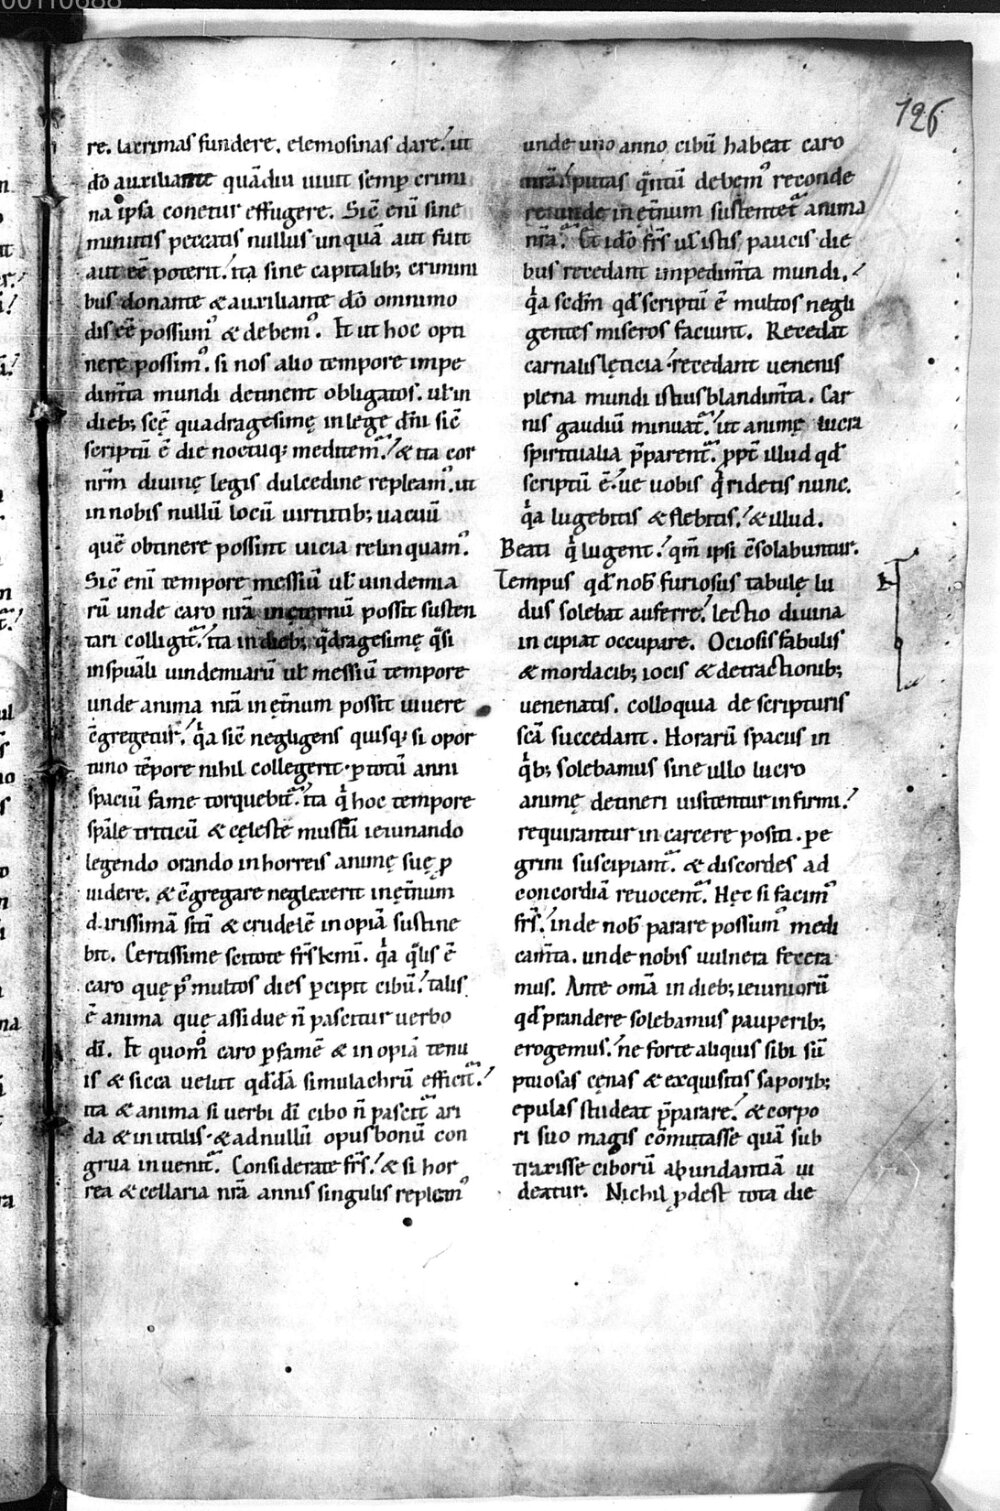 126
re. lacrimas fundere. elemosinas dare. ut
dō auxiliante quādiu uiuit semp crimi
na ipsa conetur effugere. Sic̄ eni sine
minutis peccatis nullus unquā aut fuit
aut eē poterit. ita sine capitalib; crimini
bus donante & auxiliante dō omnimo
dis eē possum᷒ & debem᷒. Et ut hoc opti
nere possim᷒. si nos alio tempore impe
dim̄ta mundi detinent obligatos. ul̄ in
dieb; scę̄ quadragesimę in lege dn̄i sic̄
scriptū ē die noctuq; meditem᷒. & ita cor
nr̄m diuinę legis dulcedine repleam᷒. ut
in nobis nullū locū uirtutib; uacuū
quē obtinere possint uicia relinquam᷒.
Sic̄ eni tempore messiū ul̄ uindemia
rū unde caro nr̄a in eternū possit susten
tari colligit᷑. ita in dieb; qͣdragesimę qͣsi
in spuāli uindemiarū ul̄ messiū tempore
unde anima nr̄a in et̄num possit uiuere
ꝯgregetur. qͥa sic̄ negligens quisq; si opor
tuno tēpore nihil collegerit. ꝑ totū anni
spaciū fame torquebit᷑. ita qͥ hoc tempore
spāle triticū & cęleste mustū ieiunando
legendo orando in horreis animę suę ꝓ
uidere. & ꝯgregare neglexerit in et̄num
dirissimā sitī & crudelē inopiā sustine
bit. Certissime scitote fr̄s kmi. qͥa qͣlis ē
caro quę p᷒ multos dies ꝑcipit cibū. talis
ē anima quę assidue n̄ pascitur uerbo
dī. Et quom᷒ caro ꝑ famē & inopiā tenu
is & sicca uelut qd̄dā simulachrū efficit᷑.
ita & anima si uerbi dī cibo n̄ pascit᷑ ari
da & inutilis. & ad nullū opus bonū con
grua inuenit᷑. Considerate fr̄s. & si hor
rea & cellaria nr̄a annis singulis replem᷒
unde uno anno cibū habeat caro
nr̄a. putas qͣntū debem᷒ reconde
re unde in et̄num sustentet᷑ anima
nr̄a. Et idō fr̄s ul̄ istis paucis die
bus recedant impedim̄ta mundi.
qͥa scd̄m qd̄ scriptū ē multos negli
gentes miseros faciunt. Recedat
carnalis lęticia. recedant uenenis
plena mundi istius blandim̄ta. Car
nis gaudiū minuat᷑. ut animę lucra
spiritualia p̄parent᷑. ꝓpt̄ illud qd̄
scriptū ē. ue uobis qͥ ridetis nunc.
qͥa lugebitis & flebitis. & illud.
Beati qͥ lugent. qm̄ ipsi ꝯsolabuntur.
Tempus qd̄ nob̄ furiosus tabulę lu
dus solebat auferre. lectio diuina
incipiat occupare. Ociosis fabulis
& mordacib; iocis & detractionib;
uenenatis. colloquia de scripturis
scā succedant. Horarū spaciis in
qͥb; solebamus sine ullo lucro
animę detineri uisitentur infirmi.
requirantur in carcere positi. pe
grini suscipiant᷑. & discordes ad
concordiā reuocent᷑. Hęc si facim᷒
fr̄s. inde nob̄ parare possum᷒ medi
cam̄ta. unde nobis uulnera fecera
mus. Ante omā in dieb; ieiuniorū
qd̄ prandere solebamus pauperib;
erogemus. ne forte aliquis sibi sū
ptuosas cęnas & exquisitis saporib;
epulas studeat p̄parare. & corpo
ri suo magis cōmutasse quā sub
traxisse ciborū abundantiā ui
deatur. Nichil ꝓdest tota die